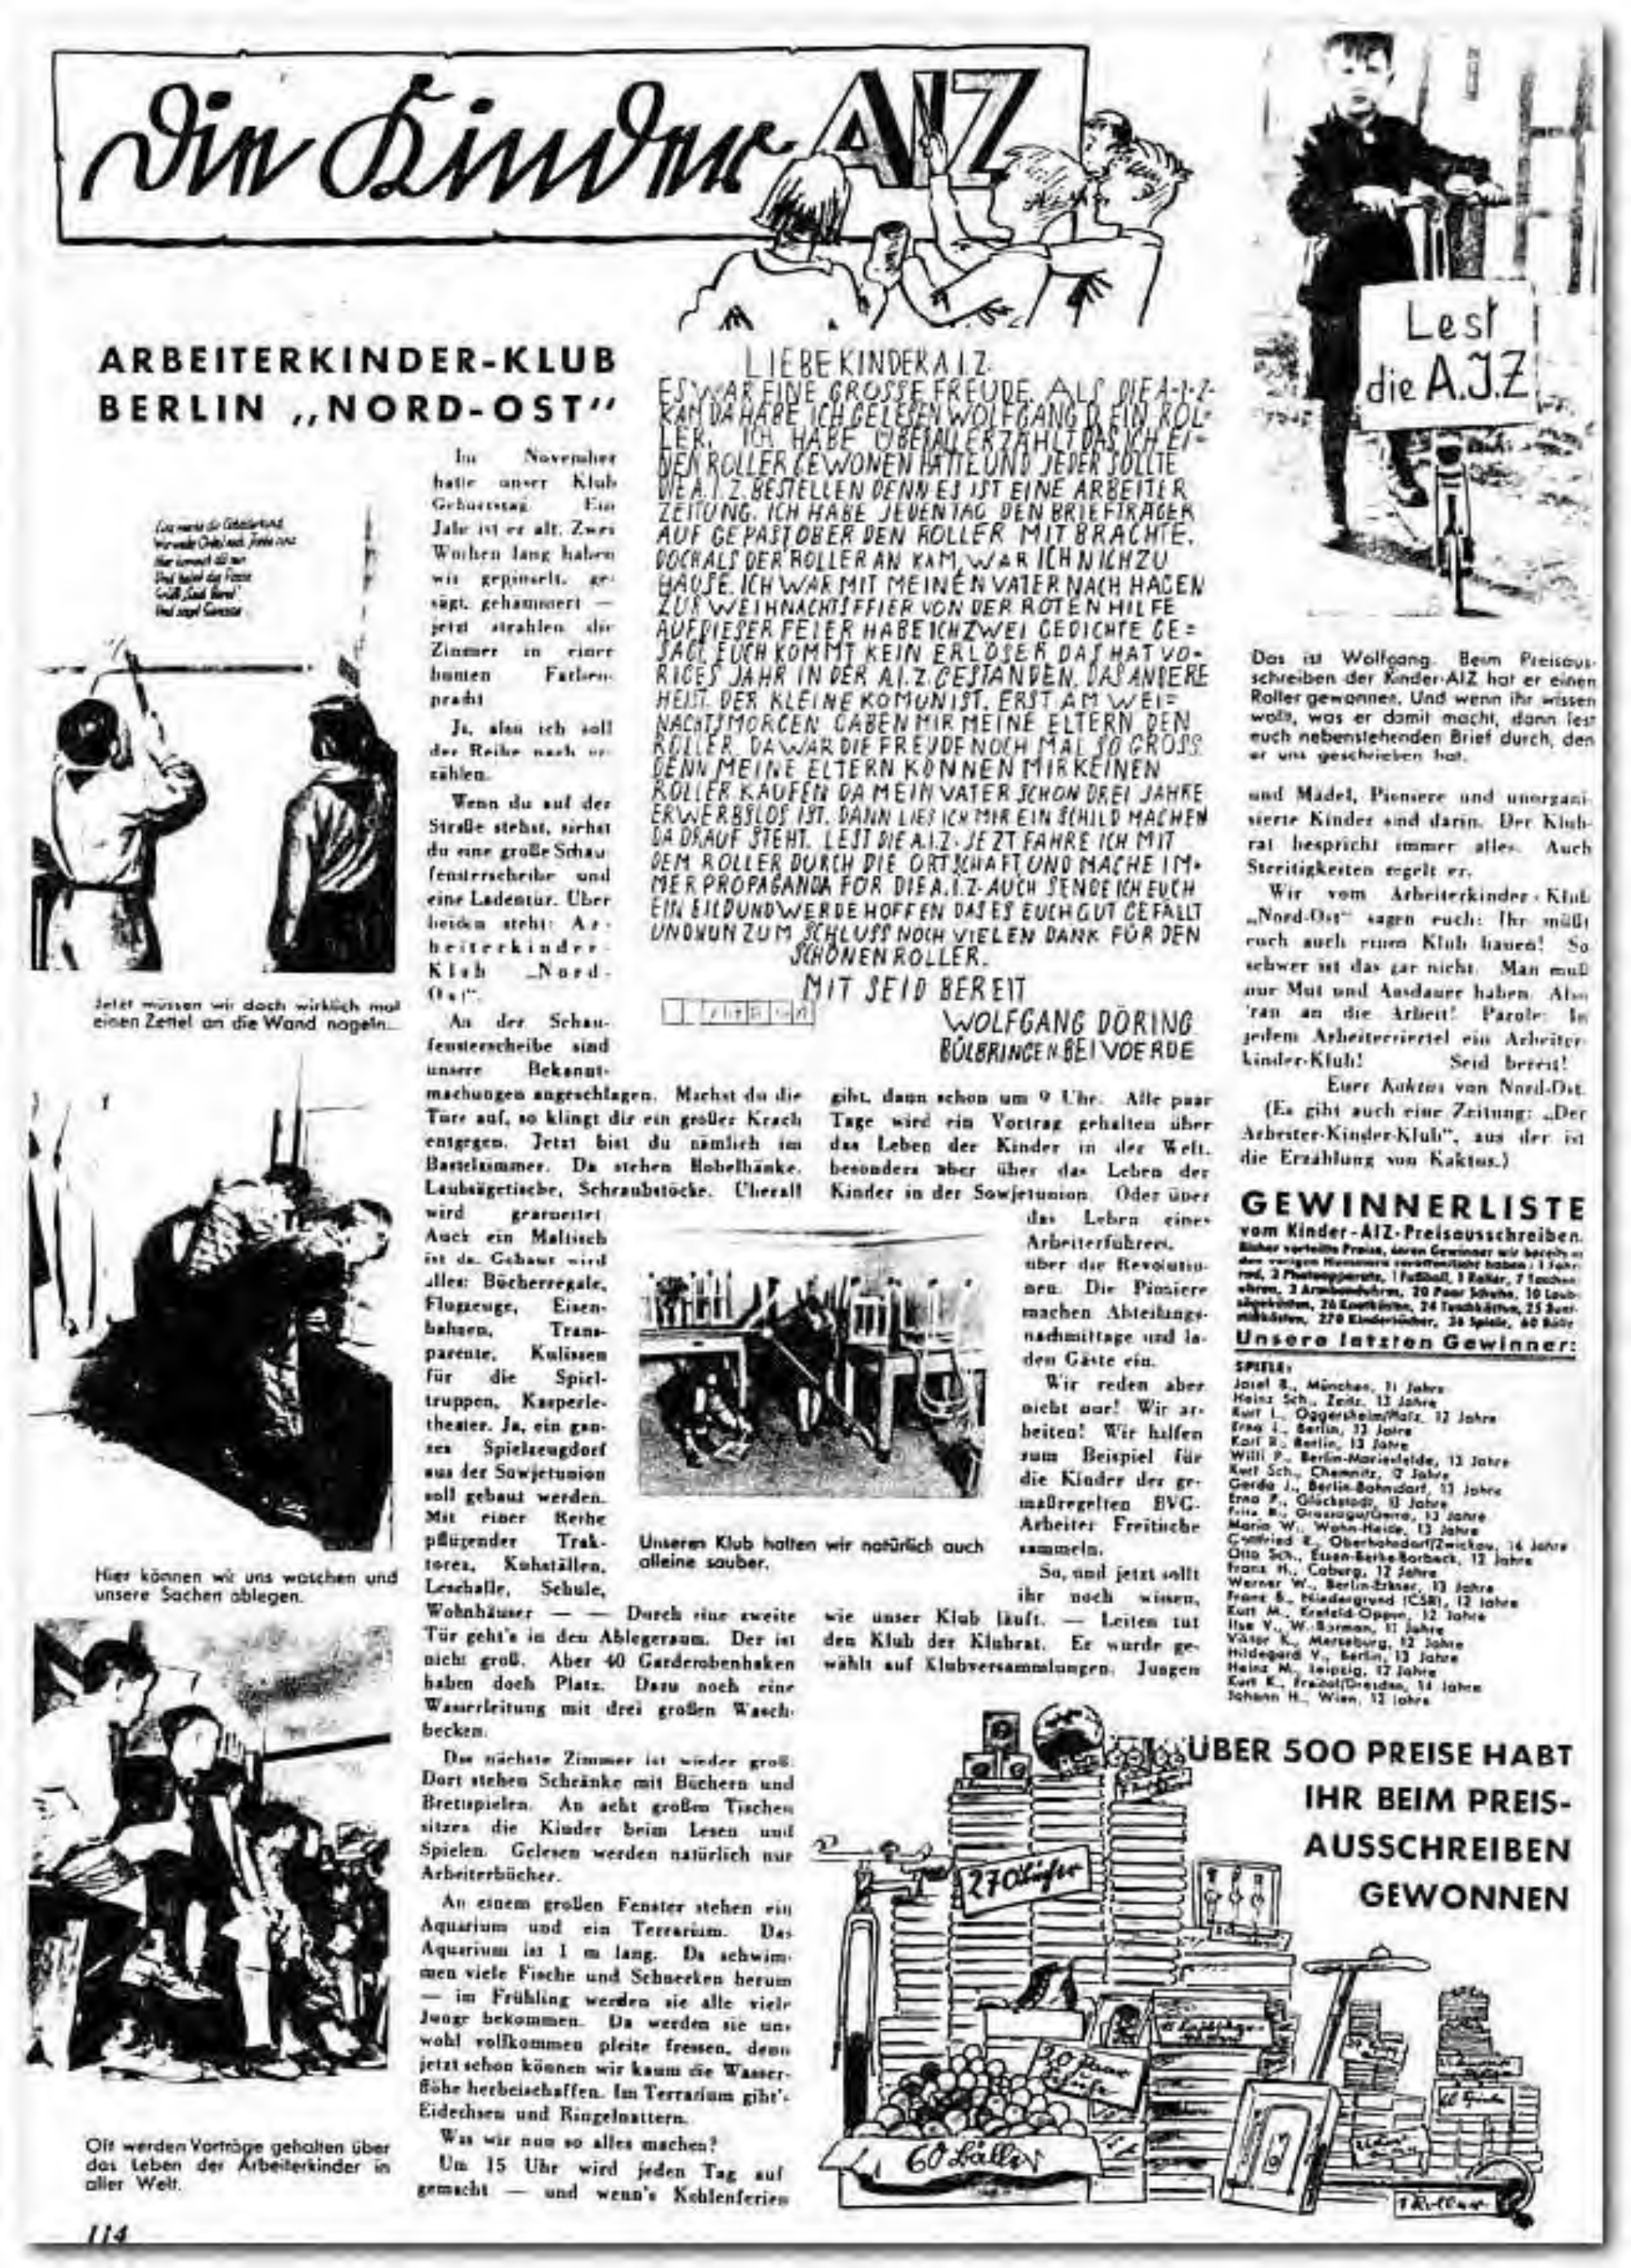 Die Kinder AIZ
ARBEITERKINDER-KLUB
BERLIN „NORD-OST"
Im November
hatte unser Klub
Geburtstag. Ein
Jahr ist er alt. Zwei
Wochen lang haben
wir gepinselt, ge-
sägt, gehämmert —
jetzt strahlen die
Zimmer in einer
bunten Farben-
pracht
Ja, also ich soll
der Reihe nach er-
zählen.
Wenn du auf der
Straße stehst, siehst
du eine große Schau-
fensterscheibe und
eine Ladentür. Über
beiden steht: Ar-
beiterkinder-
Klub „Nord-
Ost".
An der Schau-
fensterscheibe sind
unsere Bekannt-
machungen angeschlagen. Machst du die
Türe auf, so klingt dir ein großer Krach
entgegen. Jetzt bist du nämlich im
Bastelzimmer. Da stehen Hobelbänke,
Laubsägetische, Schraubstöcke. Überall
wird gearbeitet
Auch ein Maltisch
ist da. Gebaut wird
alles: Bücherregale,
Flugzeuge, Eisen-
bahnen, Trans-
parente, Kulissen
für die Spiel-
truppen, Kasperle-
theater. Ja, ein gan-
zes Spielzeugdorf
aus der Sowjetunion
soll gebaut werden.
Mit einer Reihe
pflügender Trak-
toren, Kuhställen,
Lesehalle, Schule,
Wohnhäuser — — Durch eine zweite
Tür geht's in den Ablegeraum. Der ist
nicht groß. Aber 40 Garderobenhaken
haben doch Platz. Dazu noch eine
Wasserleitung mit drei großen Wasch-
becken.
Das nächste Zimmer ist wieder groß.
Dort stehen Schränke mit Büchern und
Brettspielen. An acht großen Tischen
sitzen die Kinder beim Lesen und
Spielen. Gelesen werden natürlich nur
Arbeiterbücher.
An einem großen Fenster stehen ein
Aquarium und ein Terrarium. Das
Aquarium ist 1 m lang. Da schwim-
men viele Fische und Schnecken herum
— im Frühling werden sie alle viele
Junge bekommen. Da werden sie uns
wohl vollkommen pleite fressen, denn
jetzt schon können wir kaum die Wasser-
flöhe herbeischaffen. Im Terrarium gibt's
Eidechsen und Ringelnattern.
Was wir nun so alles machen?
Um 15 Uhr wird jeden Tag auf
gemacht — und wenn's Kohlenferien
gibt, dann schon um 9 Uhr. Alle paar
Tage wird ein Vortrag gehalten über
das Leben der Kinder in der Welt,
besonders aber über das Leben der
Kinder in der Sowjetunion. Oder über
das Leben eines
Arbeiterführers,
über die Revolutio-
nen. Die Pioniere
machen Abteilungs-
nachmittage und la-
den Gäste ein.
Wir reden aber
nicht nur! Wir ar-
beiten! Wir halfen
zum Beispiel für
die Kinder der ge-
maßregelten BVG-
Arbeiter Freitische
sammeln.
So, und jetzt sollt
ihr noch wissen,
wie unser Klub läuft. — Leiten tut
den Klub der Klubrat. Er wurde ge-
wählt auf Klubversammlungen. Jungen
und Mädel, Pioniere und unorgani-
sierte Kinder sind darin. Der Klub-
rat bespricht immer alles. Auch
Streitigkeiten regelt er.
Wir vom Arbeiterkinder-Klub
„Nord-Ost" sagen euch: Ihr müßt
euch auch einen Klub bauen! So
schwer ist das gar nicht. Man muß
nur Mut und Ausdauer haben. Also
'ran an die Arbeit! Parole: In
jedem Arbeiterviertel ein Arbeiter-
kinder-Klub! Seid bereit!
Euer Kaktus von Nord-Ost.
(Es gibt auch eine Zeitung: „Der
Arbeiter-Kinder-Klub", aus der ist
die Erzählung von Kaktus.)
Und sagt Genosse
Jetzt müssen wir doch wirklich mal
einen Zettel an die Wand nageln...
Hier können wir uns waschen und
unsere Sachen ablegen.
Oft werden Vorträge gehalten über
das Leben der Arbeiterkinder in
aller Welt.
Unseren Klub halten wir natürlich auch
alleine sauber.
LIEBE KINDER A.I.Z.
ES WAR EINE GROSSE FREUDE, ALS DIE A-I-Z-
KAM DA HABE ICH GELESEN WOLFGANG D. EIN ROL=
LER. ICH HABE ÜBERALL ERZÄHLT DAS ICH EI=
NEN ROLLER GEWONEN HÄTTE UND JEDER SOLLTE
DIE A.I.Z. BESTELLEN DENN ES IST EINE ARBEITER
ZEITUNG. ICH HABE JEDEN TAG DEN BRIEFTRÄGER
AUF GEPAST OBER DEN ROLLER MIT BRACHTE.
DOCH ALS DER ROLLER AN KAM, WAR ICH NICH ZU
HAUSE. ICH WAR MIT MEINEN VATER NACH HAGEN
ZUR WEIHNACHTSFFIER VON DER ROTEN HILFE
AUF DIESER FEIER HABE ICH ZWEI GEDICHTE GE=
SAGT, EUCH KOMMT KEIN ERLÖSER DAS HAT VO-
RIGES JAHR IN DER A.I.Z. GESTANDEN. DAS ANDERE
HEIST. DER KLEINE KOMUNIST. ERST AM WEI=
NACHTSMORGEN GABEN MIR MEINE ELTERN DEN
ROLLER. DA WAR DIE FREUDE NOCH MAL SO GROSS.
DENN MEINE ELTERN KÖNNEN MIR KEINEN
ROLLER KAUFEN DA MEIN VATER SCHON DREI JAHRE
ERWERBSLOS IST. DANN LIES ICH MIR EIN SCHILD MACHEN
DA DRAUF STEHT. LEST DIE A.I.Z. JEZT FAHRE ICH MIT
DEM ROLLER DURCH DIE ORTSCHAFT UND MACHE IM-
MER PROPAGANDA FÜR DIE A.I.Z. AUCH SENDE ICH EUCH
EIN BILD UND WERDE HOFFEN DAS ES EUCH GUT GEFÄLLT
UND NUN ZUM SCHLUSS NOCH VIELEN DANK FÜR DEN
SCHÖNEN ROLLER.
MIT SEID BEREIT
WOLFGANG DÖRING
BÜLBRINGEN BEI VOERDE
Lest
die A.J.Z
Das ist Wolfgang. Beim Preisaus-
schreiben der Kinder-AIZ hat er einen
Roller gewonnen. Und wenn ihr wissen
wollt, was er damit macht, dann lest
euch nebenstehenden Brief durch, den
er uns geschrieben hat.
GEWINNERLISTE
vom Kinder-AIZ-Preisausschreiben.
Bisher verteilte Preise, deren Gewinner wir bereits in
den vorigen Nummern veröffentlicht haben: 1 Fahr-
rad, 2 Photoapparate, 1 Fußball, 1 Roller, 7 Taschen-
uhren, 3 Armbanduhren, 20 Paar Schuhe, 10 Laub-
270 Kinderbücher, 36 Spiele, 60 Bälle
Unsere letzten Gewinner:
SPIELE:
Josef B., München, 11 Jahre
Heinz Sch., Zeitz, 13 Jahre
Kurt L., Oggersheim/Pfalz, 12 Jahre
Erna L., Berlin, 13 Jahre
Karl R., Berlin, 13 Jahre
Willi P., Berlin-Marienfelde, 13 Jahre
Kurt Sch., Chemnitz, 12 Jahre
Gerda J., Berlin-Bohnsdorf, 13 Jahre
Erna P., Glückstadt, 13 Jahre
Fritz 13 Jahre
Maria W., Wahn-Heide, 13 Jahre
Gottfried R., Oberhohndorf/Zwickau, 14 Jahre
Otto Sch., Essen-Berke-Borbeck, 12 Jahre
Franz H., Coburg, 12 Jahre
Werner W., Berlin-Erkner, 13 Jahre
Franz B., Niedergrund (CSR), 12 Jahre
Kurt M., Krefeld-Oppum, 12 Jahre
Ilse V., W.-Barmen, 11 Jahre
Viktor K., Merseburg, 12 Jahre
Hildegard V., Berlin, 13 Jahre
Heinz M., Leipzig, 12 Jahre
Kurt K., Freital/Dresden, 14 Jahre
Johann H., Wien, 12 Jahre
ÜBER 500 PREISE HABT
IHR BEIM PREIS-
AUSSCHREIBEN
GEWONNEN
270 Bücher
20 Paar
Schuhe
60 Bälle
1 Roller
114